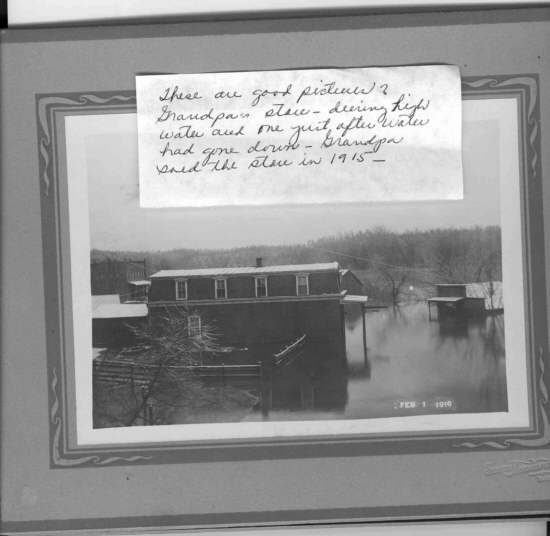 These are good pictures of
Grandpa's store – during high
water and one just after water
had gone down – Grandpa
sold the store in 1915 –
FEB 1 1916